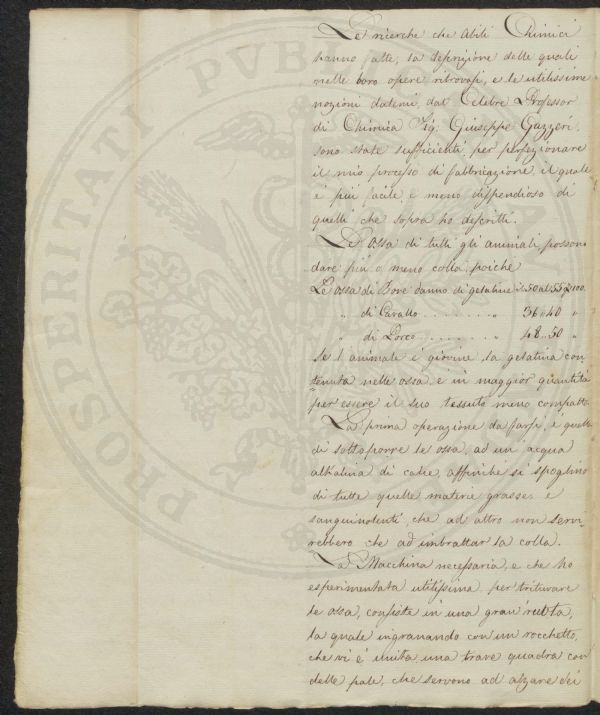 Le ricerche che abili Chimici
hanno fatte, la descrizione delle quali
nelle loro opere ritrovasi, e le utilissime
nozioni datemi dal Celebre Professor
di Chimica Sig: Giuseppe Gazzeri,
sono state sufficienti per perfezionare
il mio processo di fabbricazione, il quale
è più facile, e meno dispendioso di
quelli che sopra ho descritti.
Le Ossa di tutti gli animali, possono
dare più o meno colla, poichè
Le Ossa di Bove danno di gelatina il 50 al 55 p 100.
" di Cavallo . . . . . . . . " 36 " 40 "
" di Porco . . . . . . . . " 48 .. 50 "
Se l'animale è giovine la gelatina con
tenuta nelle ossa, è in maggior quantità
per essere il suo tessuto meno compatto.
La prima operazione da farsi, è quella
di sottoporre le ossa, ad un acqua
alkalina di calce, affinchè si spoglino
di tutte quelle materie grasse, e
sanguinolenti, che ad altro non servi-
rebbero che ad imbrattar la colla.
La Macchina necessaria, e che ho
esperimentata utilissima per triturare
le ossa, consiste in una gran ruota,
la quale ingranando con un rocchetto,
che vi è unita una trave quadra con
delle pale, che servono ad alzare dei
PROSPERITATI PVBLICAE